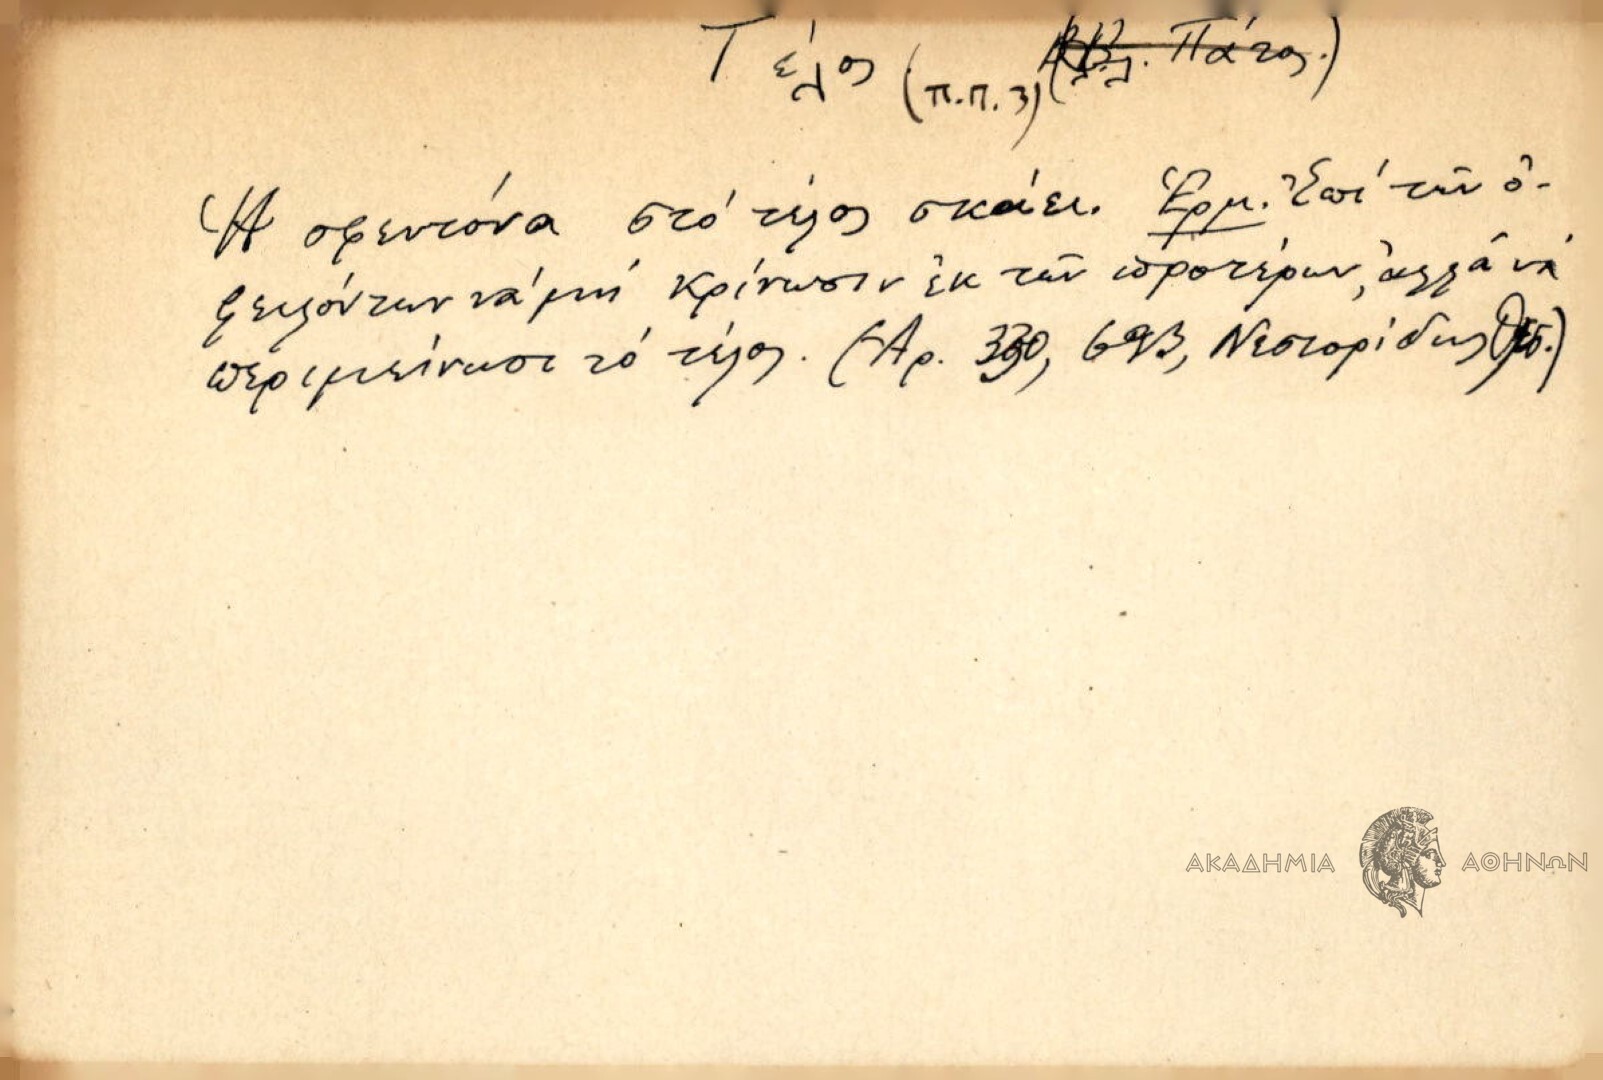 Τέλος (π.π. 3) (Βλ. Πάτος.)
Ἡ σφεντόνα στό τέλος σκάει. Ἑρμ. Ἐπί τῶν ὀ-
φειλόντων νά μή κρίνωσιν ἐκ τῶν προτέρων, ἀλλά νά
περιμείνωσι τό τέλος. (Ἀρ. 693, Νεστορίδης)
ΑΚΑΔΗΜΙΑ ΑΘΗΝΩΝ